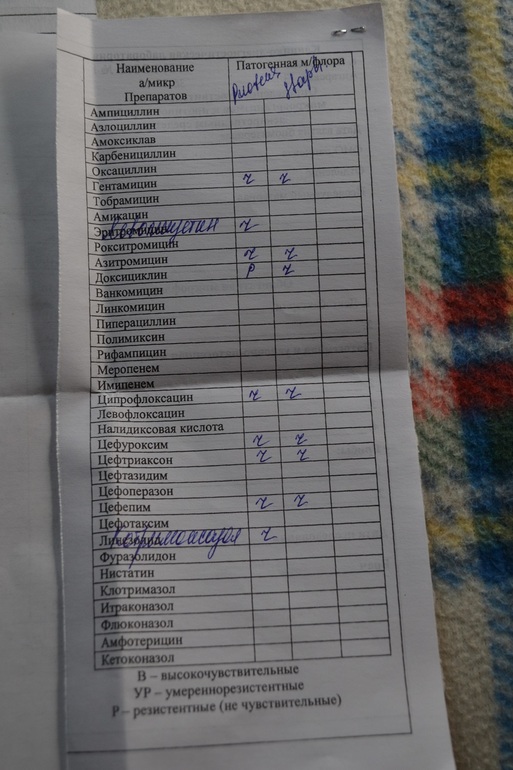 Наименование
а/микр
Препаратов
Патогенная м/флора
Ампициллин
Азлоциллин
Амоксиклав
Карбенициллин
Оксациллин
Гентамицин ч ч
Тобрамицин
Амикацин
Эритромицин ч
Рокситромицин
Азитромицин ч ч
Доксициклин Р ч
Ванкомицин
Линкомицин
Пиперациллин
Полимиксин
Рифампицин
Меропенем
Имипенем
Ципрофлоксацин ч ч
Левофлоксацин
Налидиксовая кислота
Цефуроксим ч ч
Цефтриаксон ч ч
Цефтазидим
Цефоперазон
Цефепим ч ч
Цефотаксим
Линезолид ч
Фуразолидон
Нистатин
Клотримазол
Итраконазол
Флюконазол
Амфотерицин
Кетоконазол
В – высокочувствительные
УР – умереннорезистентные
Р – резистентные (не чувствительные)